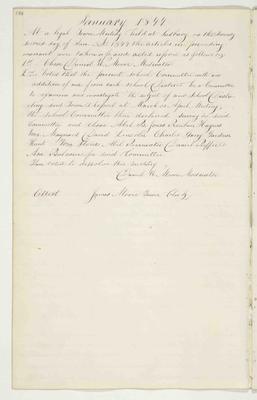 January 1844
At a legal Town Meeting held at Sudbury on the twenty
second day of Jan. A.D. 1844 the articles in preceding
warrant were taken up and acted upon as follows viz
1st Chose Daniel H. Moore Moderator
2d Voted that the present School Committee with an
addition of one from each school District be a Committee
to examine and investigate the subject of our School Districts
and report at March or April Meeting.
The School Committee then declined serving in said
Committee and chose Abel Jones Reuben Haynes
Wm. Maynard David Lincoln Charles Gerry Gardner
Hunt Abel Daniel
for said Committee
Then voted to dissolve this meeting
Daniel H. Moore Moderator
Attest James Moore Town Clerk